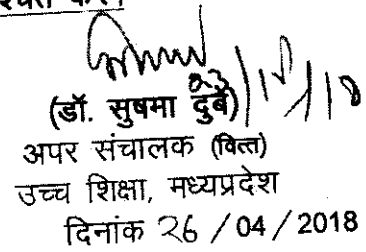 (डॉ. सुषमा दुबे)
अपर संचालक (वित्त)
उच्च शिक्षा, मध्यप्रदेश
दिनांक 26 / 04 / 2018